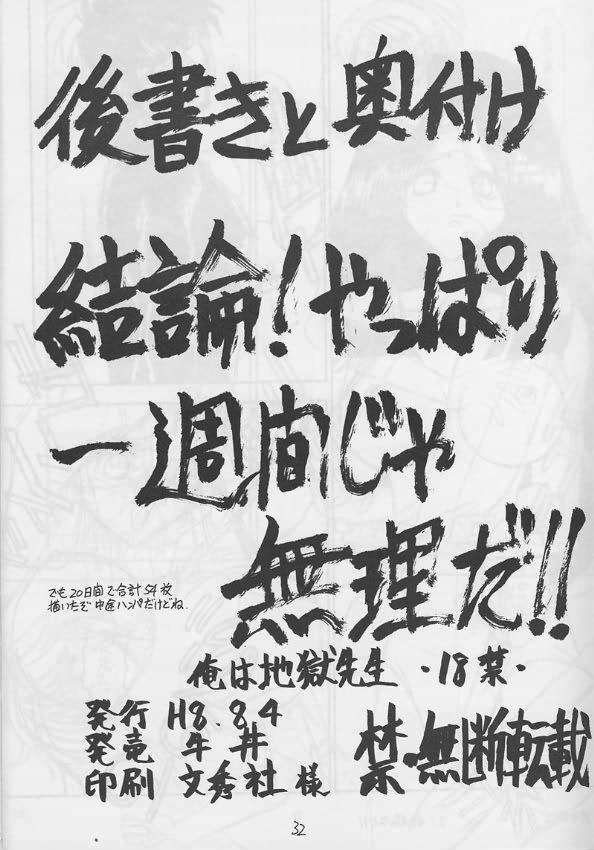 後書きと奥付け
結論！やっぱり
一週間じゃ
無理だ!!
でも20日間で合計54枚
描いたぞ 中途ハンパだけどね.
俺は地獄先生 ・18禁・
発行 H8.8.4
発売 牛丼
印刷 文秀社様
禁・無断転載
32